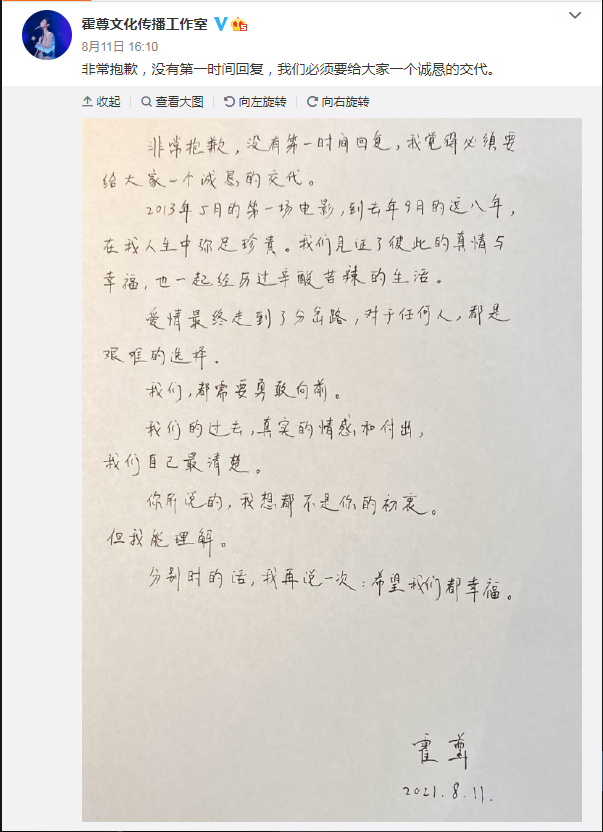 霍尊文化传播工作室
8月11日 16:10
非常抱歉，没有第一时间回复，我们必须要给大家一个诚恳的交代。
收起 查看大图 向左旋转 向右旋转
非常抱歉，没有第一时间回复，我觉得必须要
给大家一个诚恳的交代。
2013年5月的第一场电影，到去年9月的这八年，
在我人生中弥足珍贵。我们见证了彼此的真情与
幸福，也一起经历过辛酸苦辣的生活。
爱情最终走到了分岔路，对于任何人，都是
艰难的选择。
我们，都需要勇敢向前。
我们的过去，真实的情感和付出，
我们自己最清楚。
你所说的，我想都不是你的初衷。
但我能理解。
分别时的话，我再说一次：希望我们都幸福。
霍尊
2021.8.11.